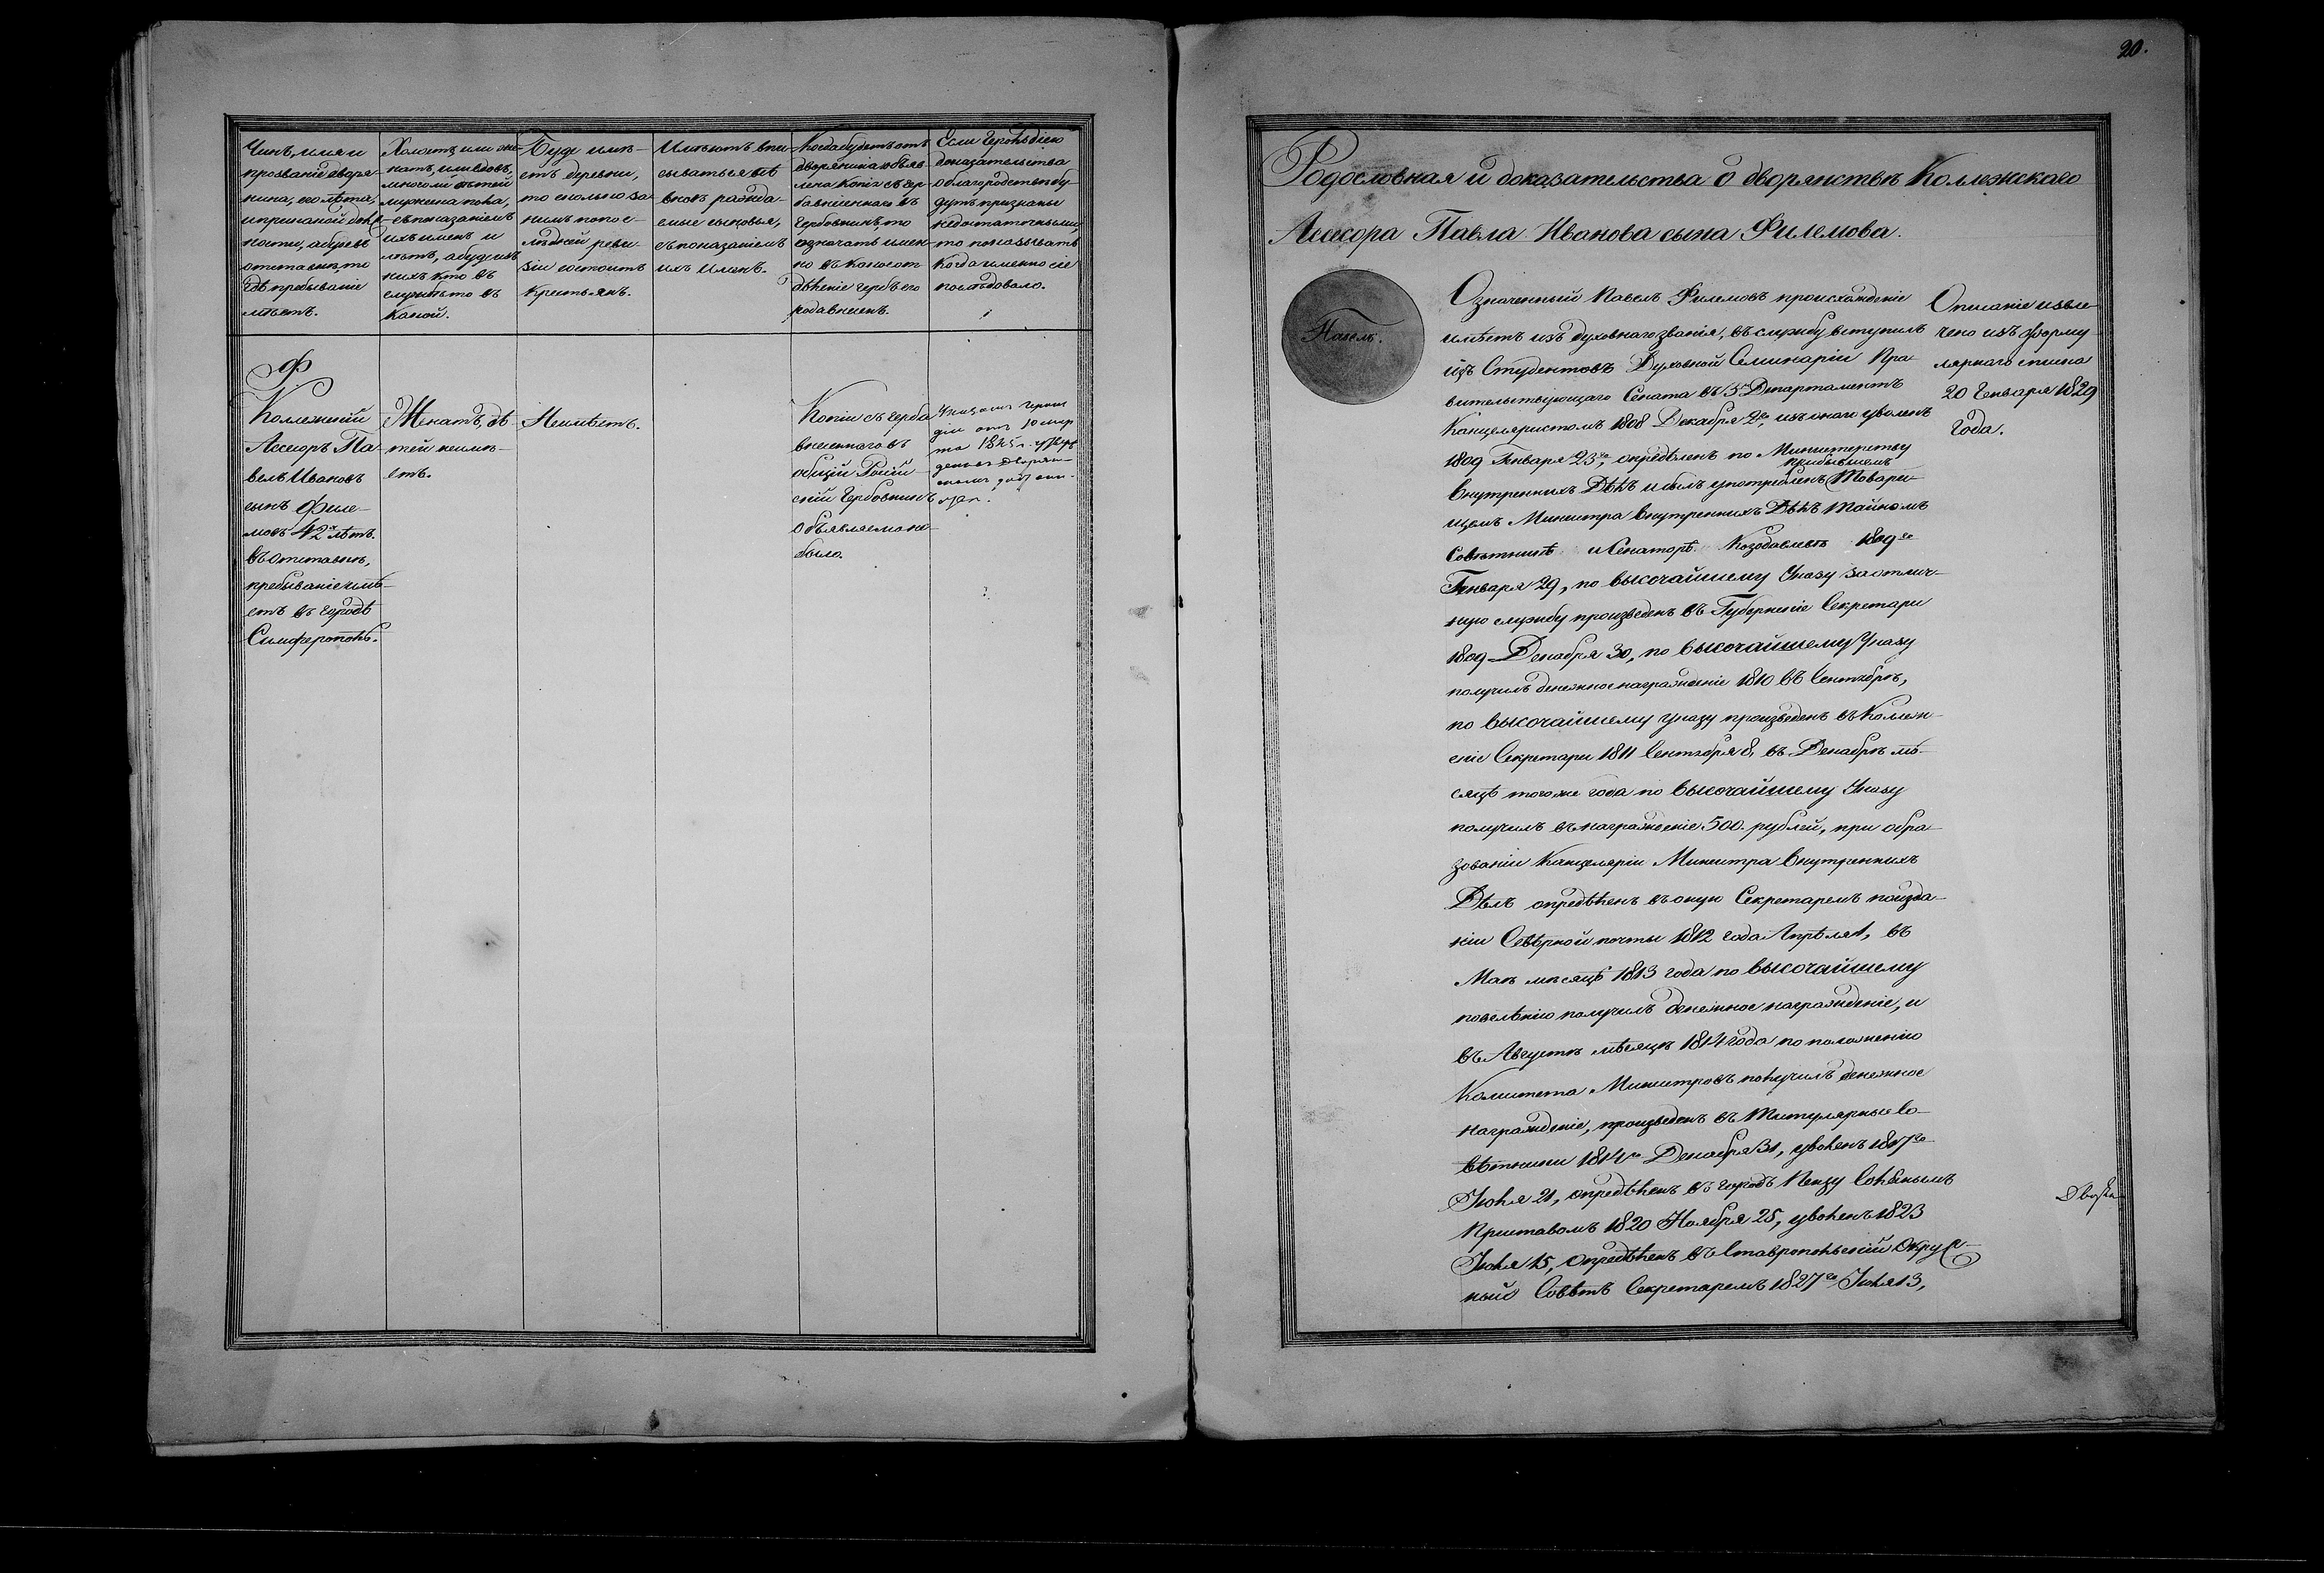 20.
Чинъ, имя и
прозваніе дворя-
нина, его лѣта,
и при какой долж-
ности, а буде въ
отставкѣ, то
гдѣ пребываніе
имѣетъ.
Холостъ, или же-
натъ, или вдовъ,
много ли дѣтей
мужеска пола,
съ показаніемъ
ихъ именъ и
лѣтъ, а буде изъ
нихъ кто въ
службѣ то въ
какой.
Буде имѣ-
етъ деревни,
то сколько за
нимъ по по с-
лѣдней реви-
зіи состоитъ
Крестьянъ.
Имѣютъ впи-
сываться всѣ
вновь раждa-
емые сыновья,
съ показаніемъ
ихъ именъ.
Когда будетъ отъ
дворянина объяв-
лена копія съ гер-
ба внесеннаго въ
Гербовникъ, то
означать имен-
но въ какое от-
дѣленіе гербъ его
рода внесенъ.
Если Герольдіею
доказательства
о благородствѣ бу-
дутъ признаны
недостаточными
то показывать
когда именно сіе
послѣдовало.
Ф
Коллежскій
Ассесоръ Па-
велъ Ивановъ
сынъ Филе-
мовъ 42х лѣтъ.
въ отставкѣ,
пребываніе имѣ-
етъ въ городѣ
Симферополѣ.
Женатъ, дѣ-
тей неимѣ-
етъ.
Неимѣетъ.
Копіи съ герба
внесеннаго въ
общій Россій-
скій Гербовникъ
объявляемо не-
было.
Указомъ Героль
діи отъ 10 мар
та 1845 г. утвер
жденъ въ дворян-
скомъ достоин-
Родословная и доказательства о дворянствѣ Коллежскаго
Ассесора Павла Иванова сына Филемова.
Павелъ.
Означенный Павелъ Филемовъ происхожденіе
имѣетъ изъ духовнаго званія, въ службу вступилъ
изъ Студентовъ Духовной Семинаріи Пра-
вительствующаго Сената въ 3й Департаментъ
Канцеляристомъ 1808 Декабря 2го, изъ онаго уволенъ
1809 Генваря 23го, опредѣленъ по Министерству
прибывшемъ
Внутреннихъ Дѣлъ и былъ употребленъ Товари-
щемъ Министра Внутреннихъ Дѣлъ Тайномъ
Совѣтникѣ и Сенаторѣ Козодавлевѣ 1809го
Генваря 29, по Высочайшему Указу за отлич-
ную службу произведенъ въ Губернскіе Секретари
1809 Декабря 30, по Высочайшему Указу
получилъ денежное награжденіе 1810 въ Сентябрѣ,
по Высочайшему указу произведенъ въ Коллеж-
скіе Секретари 1811 Сентября 8, въ Декабрѣ мѣ-
сяцѣ того же года по Высочайшему Указу
получилъ въ награжденіе 500. рублей, при обра-
зованіи Канцеляріи Министра Внутреннихъ
Дѣлъ опредѣленъ въ оную Секретаремъ по изда-
ніи Сѣверной почты 1812 года Апрѣля 1, въ
Маѣ мѣсяцѣ 1813 года по Высочайшему
повелѣнію получилъ денежное награжденіе, и
въ Августѣ мѣсяцѣ 1814 года по положенію
Комитета Министровъ получилъ денежное
награжденіе, произведенъ въ Титулярные Со-
вѣтники 1814го Декабря 31, уволенъ 1817го
Іюля 21, опредѣленъ въ городъ Пензу Солянымъ
Приставомъ 1820 Ноября 25, уволенъ 1823
Іюля 15, опредѣленъ въ Ставропольскій Окруж-
ный Совѣтъ Секретаремъ 1827го Іюля 13,
Описаніе извле-
чено изъ форму
лярнаго списка
20 Генваря 1829
года.